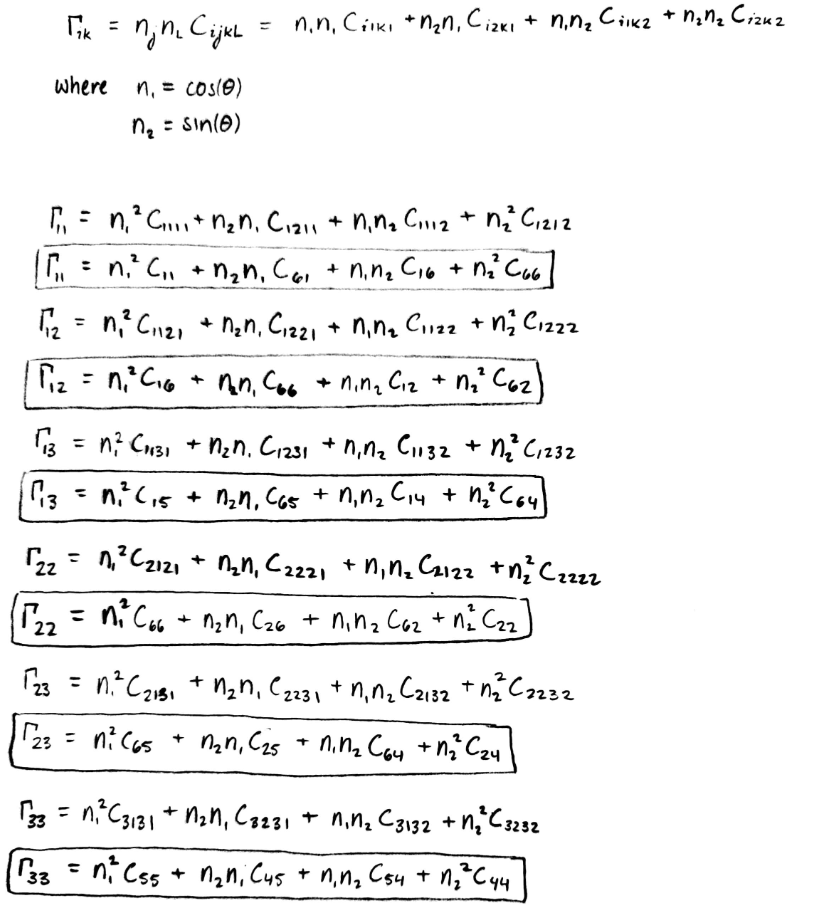 Γ_ik = n_j n_L C_ijkL = n₁n₁ C_i1k1 + n₂n₁ C_i2k1 + n₁n₂ C_i1k2 + n₂n₂ C_i2k2
where n₁ = cos(θ)
n₂ = sin(θ)
Γ₁₁ = n₁² C₁₁₁₁ + n₂n₁ C₁₂₁₁ + n₁n₂ C₁₁₁₂ + n₂² C₁₂₁₂
Γ₁₁ = n₁² C₁₁ + n₂n₁ C₆₁ + n₁n₂ C₁₆ + n₂² C₆₆
Γ₁₂ = n₁² C₁₁₂₁ + n₂n₁ C₁₂₂₁ + n₁n₂ C₁₁₂₂ + n₂² C₁₂₂₂
Γ₁₂ = n₁² C₁₆ + n₂n₁ C₆₆ + n₁n₂ C₁₂ + n₂² C₆₂
Γ₁₃ = n₁² C₁₁₃₁ + n₂n₁ C₁₂₃₁ + n₁n₂ C₁₁₃₂ + n₂² C₁₂₃₂
Γ₁₃ = n₁² C₁₅ + n₂n₁ C₆₅ + n₁n₂ C₁₄ + n₂² C₆₄
Γ₂₂ = n₁² C₂₁₂₁ + n₂n₁ C₂₂₂₁ + n₁n₂ C₂₁₂₂ + n₂² C₂₂₂₂
Γ₂₂ = n₁² C₆₆ + n₂n₁ C₂₆ + n₁n₂ C₆₂ + n₂² C₂₂
Γ₂₃ = n₁² C₂₁₃₁ + n₂n₁ C₂₂₃₁ + n₁n₂ C₂₁₃₂ + n₂² C₂₂₃₂
Γ₂₃ = n₁² C₆₅ + n₂n₁ C₂₅ + n₁n₂ C₆₄ + n₂² C₂₄
Γ₃₃ = n₁² C₃₁₃₁ + n₂n₁ C₃₂₃₁ + n₁n₂ C₃₁₃₂ + n₂² C₃₂₃₂
Γ₃₃ = n₁² C₅₅ + n₂n₁ C₄₅ + n₁n₂ C₅₄ + n₂² C₄₄